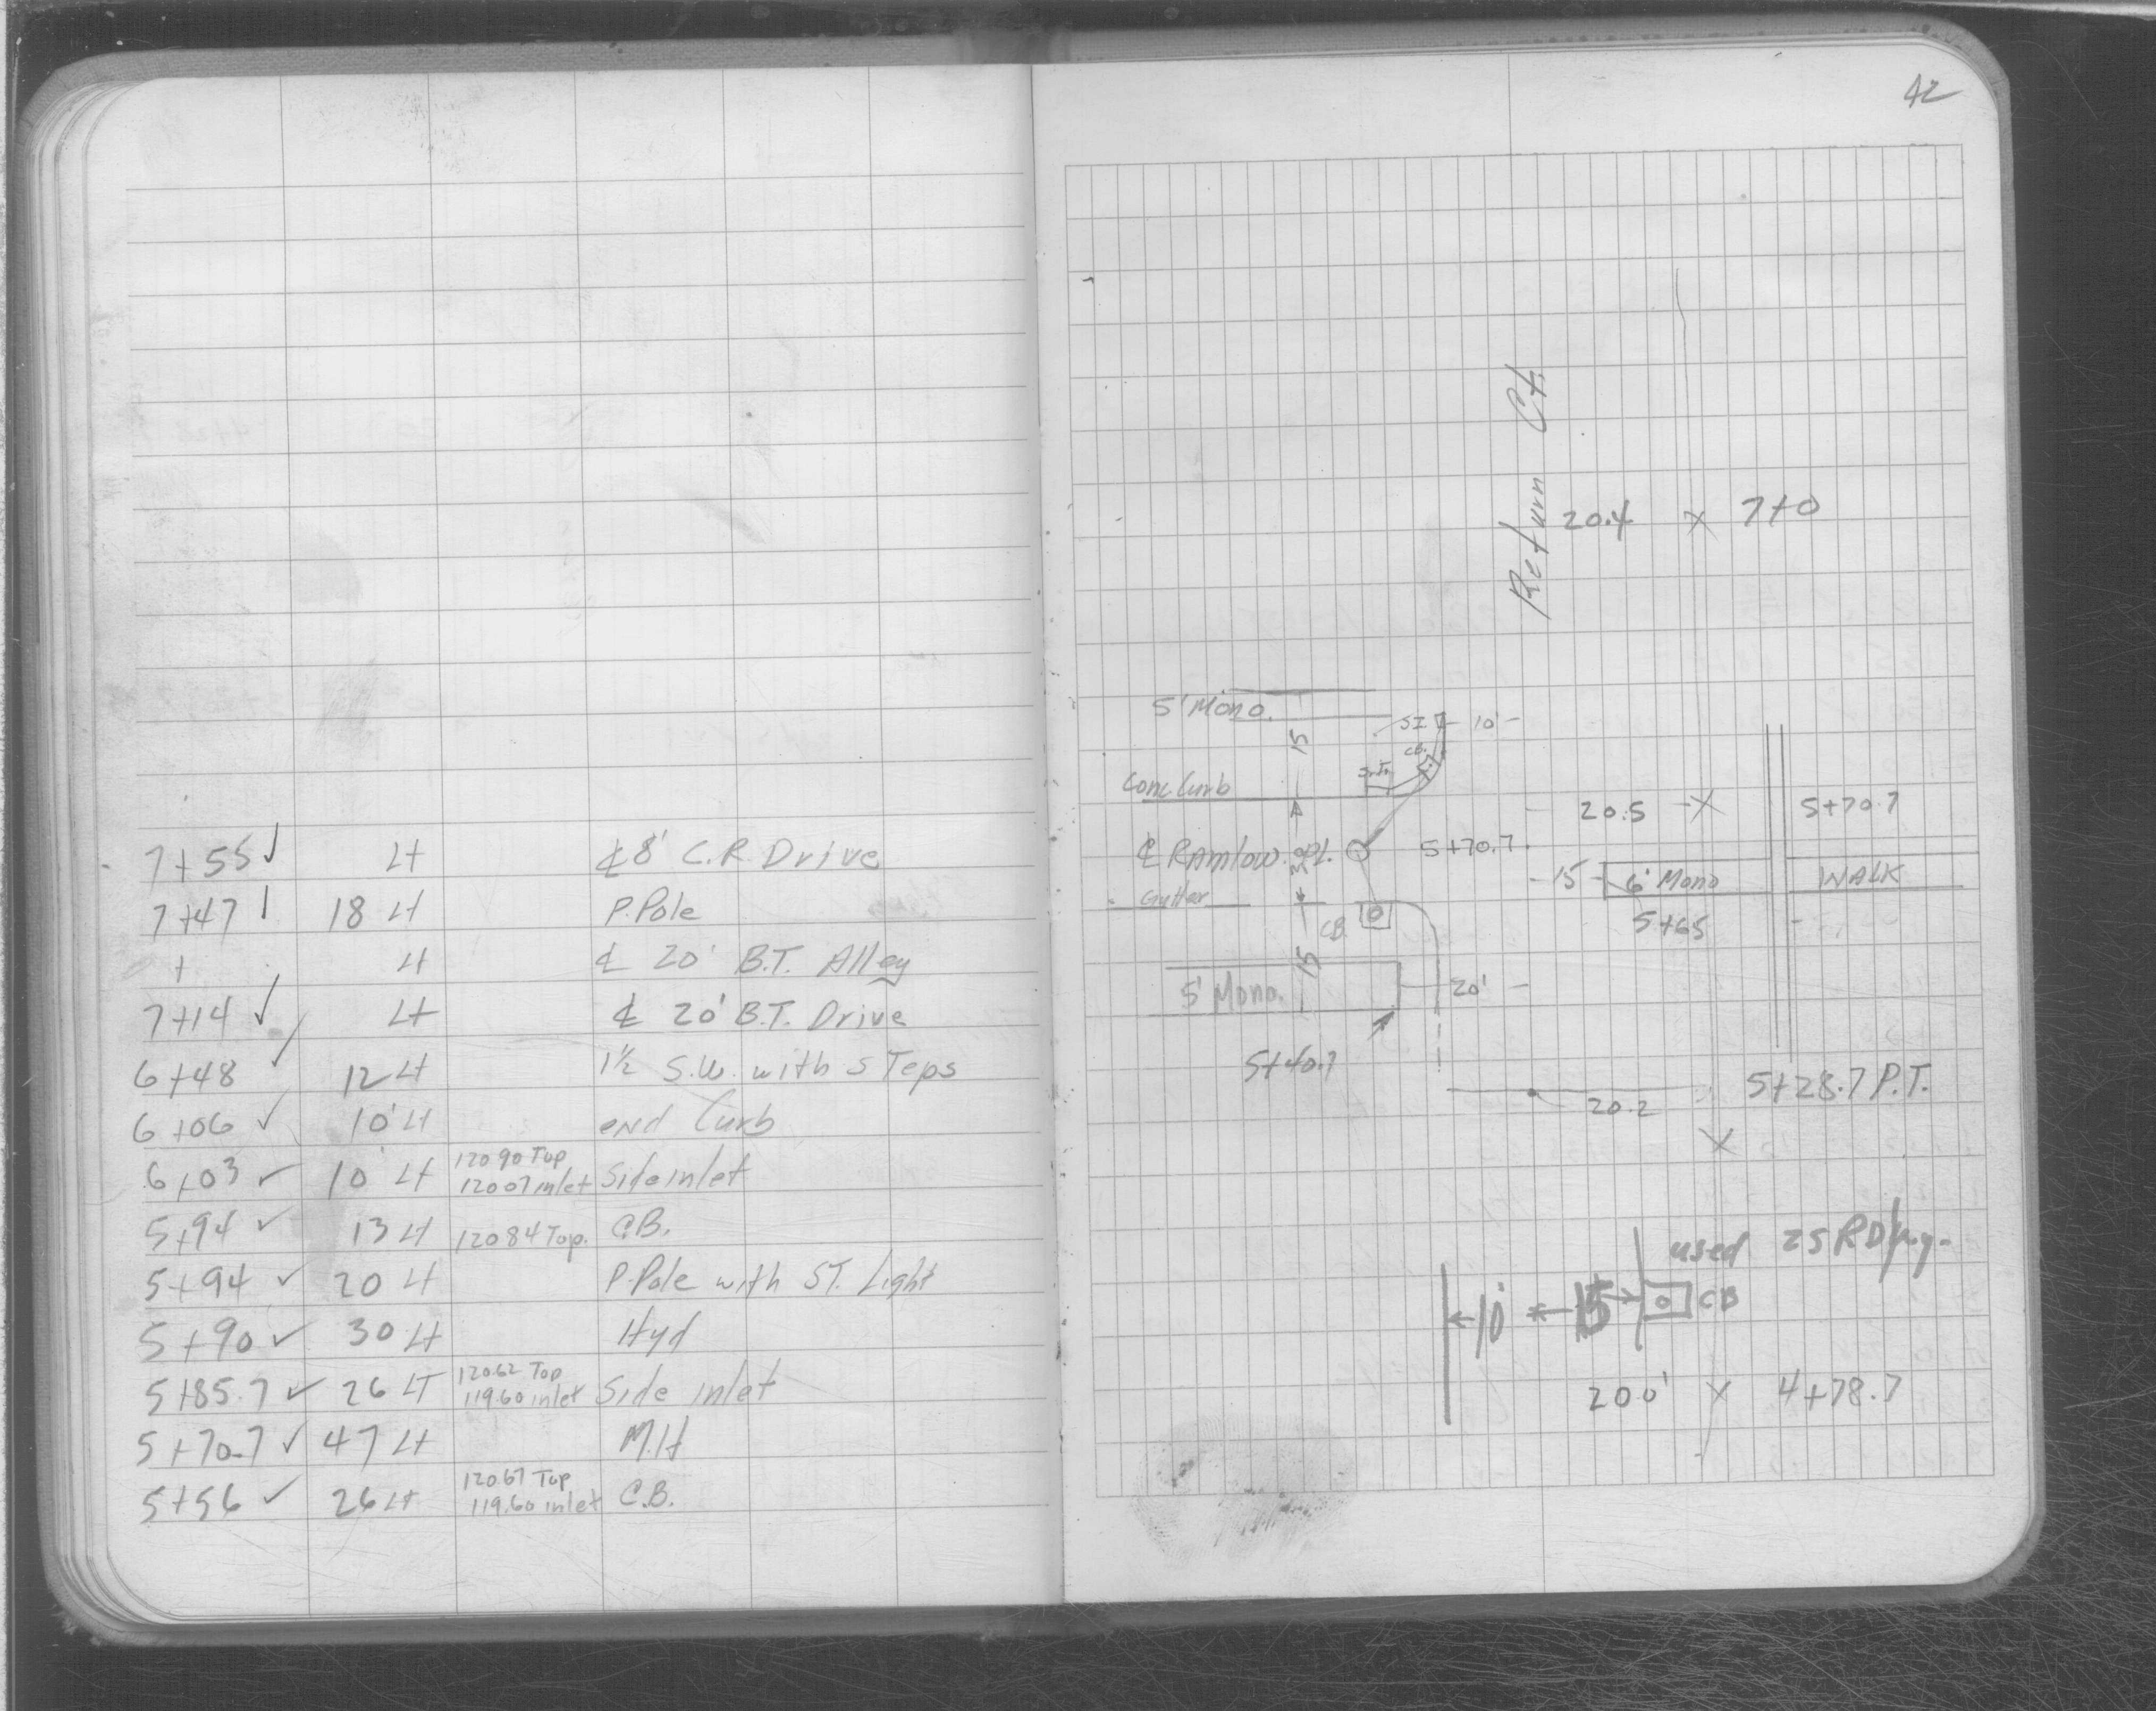 42
7+55 ✓ Lt ₵ 8' C.R. Drive
7+47 ✓ 18 Lt P.Pole
+ Lt ₵ 20' B.T. Alley
7+14 ✓ Lt ₵ 20' B.T. Drive
6+48 ✓ 12 Lt 1½ S.W. with STeps
6+06 ✓ 10' Lt end Curb
6+03 ✓ 10' Lt 120.90 Top
120.07 inlet Side inlet
5+94 ✓ 13 Lt 120.84 Top. C.B.
5+94 ✓ 20 Lt P.Pole with ST. Light
5+90 ✓ 30 Lt Hyd
5+85.7 ✓ 26 LT 120.62 Top
119.60 inlet Side inlet
5+70.7 ✓ 47 Lt M.H
5+56 ✓ 26 Lt 120.67 Top
119.60 inlet C.B.
Return Ct.
20.4 x 7+0
5' Mono.
SI 10'
15
CB.
Conc Curb
20.5 x 5+70.7
₵ Ramlow Pl.
30
5+70.7
15 6' Mono WALK
Gutter
CB.
5+65
15
5' Mono.
20'
5+40.7
5+28.7 P.T.
20.2
x
used 25 R
10' 15 CB
20.0' x 4+78.7